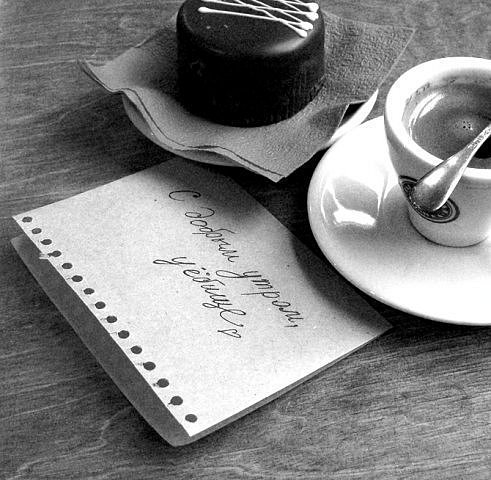 С добрым утром,
уёбище ♡